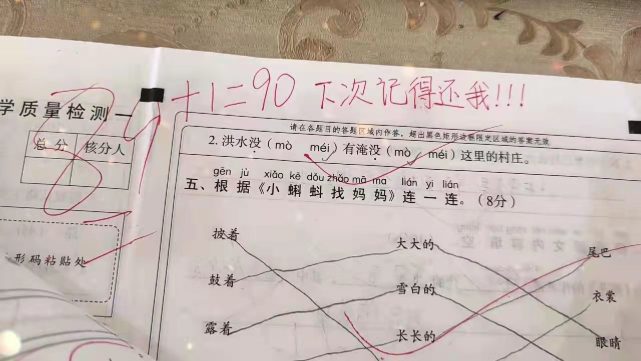 89+1=90 下次记得还我!!!
学质量检测一
总分 核分人
请在各题目的答题区域内作答，超出黑色矩形边框限定区域的答案无效
2. 洪水没（mò méi）有淹没（mò méi）这里的村庄。
gēn jù xiǎo kē dǒu zhǎo mā ma lián yi lián
五、根据《小蝌蚪找妈妈》连一连。（8分）
形码粘贴处
披着 大大的 尾巴
鼓着 雪白的 衣裳
露着 长长的 眼睛